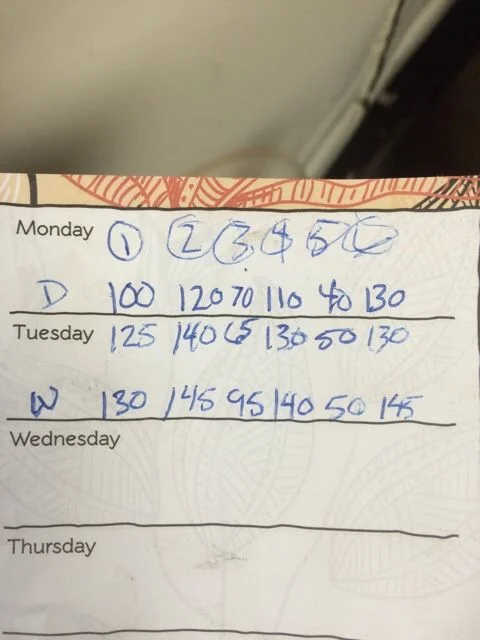 Monday ① ② ③ ④ ⑤ ⑥
D 100 120 70 110 40 130
Tuesday 125 140 65 130 50 130
W 130 145 95 140 50 145
Wednesday
Thursday